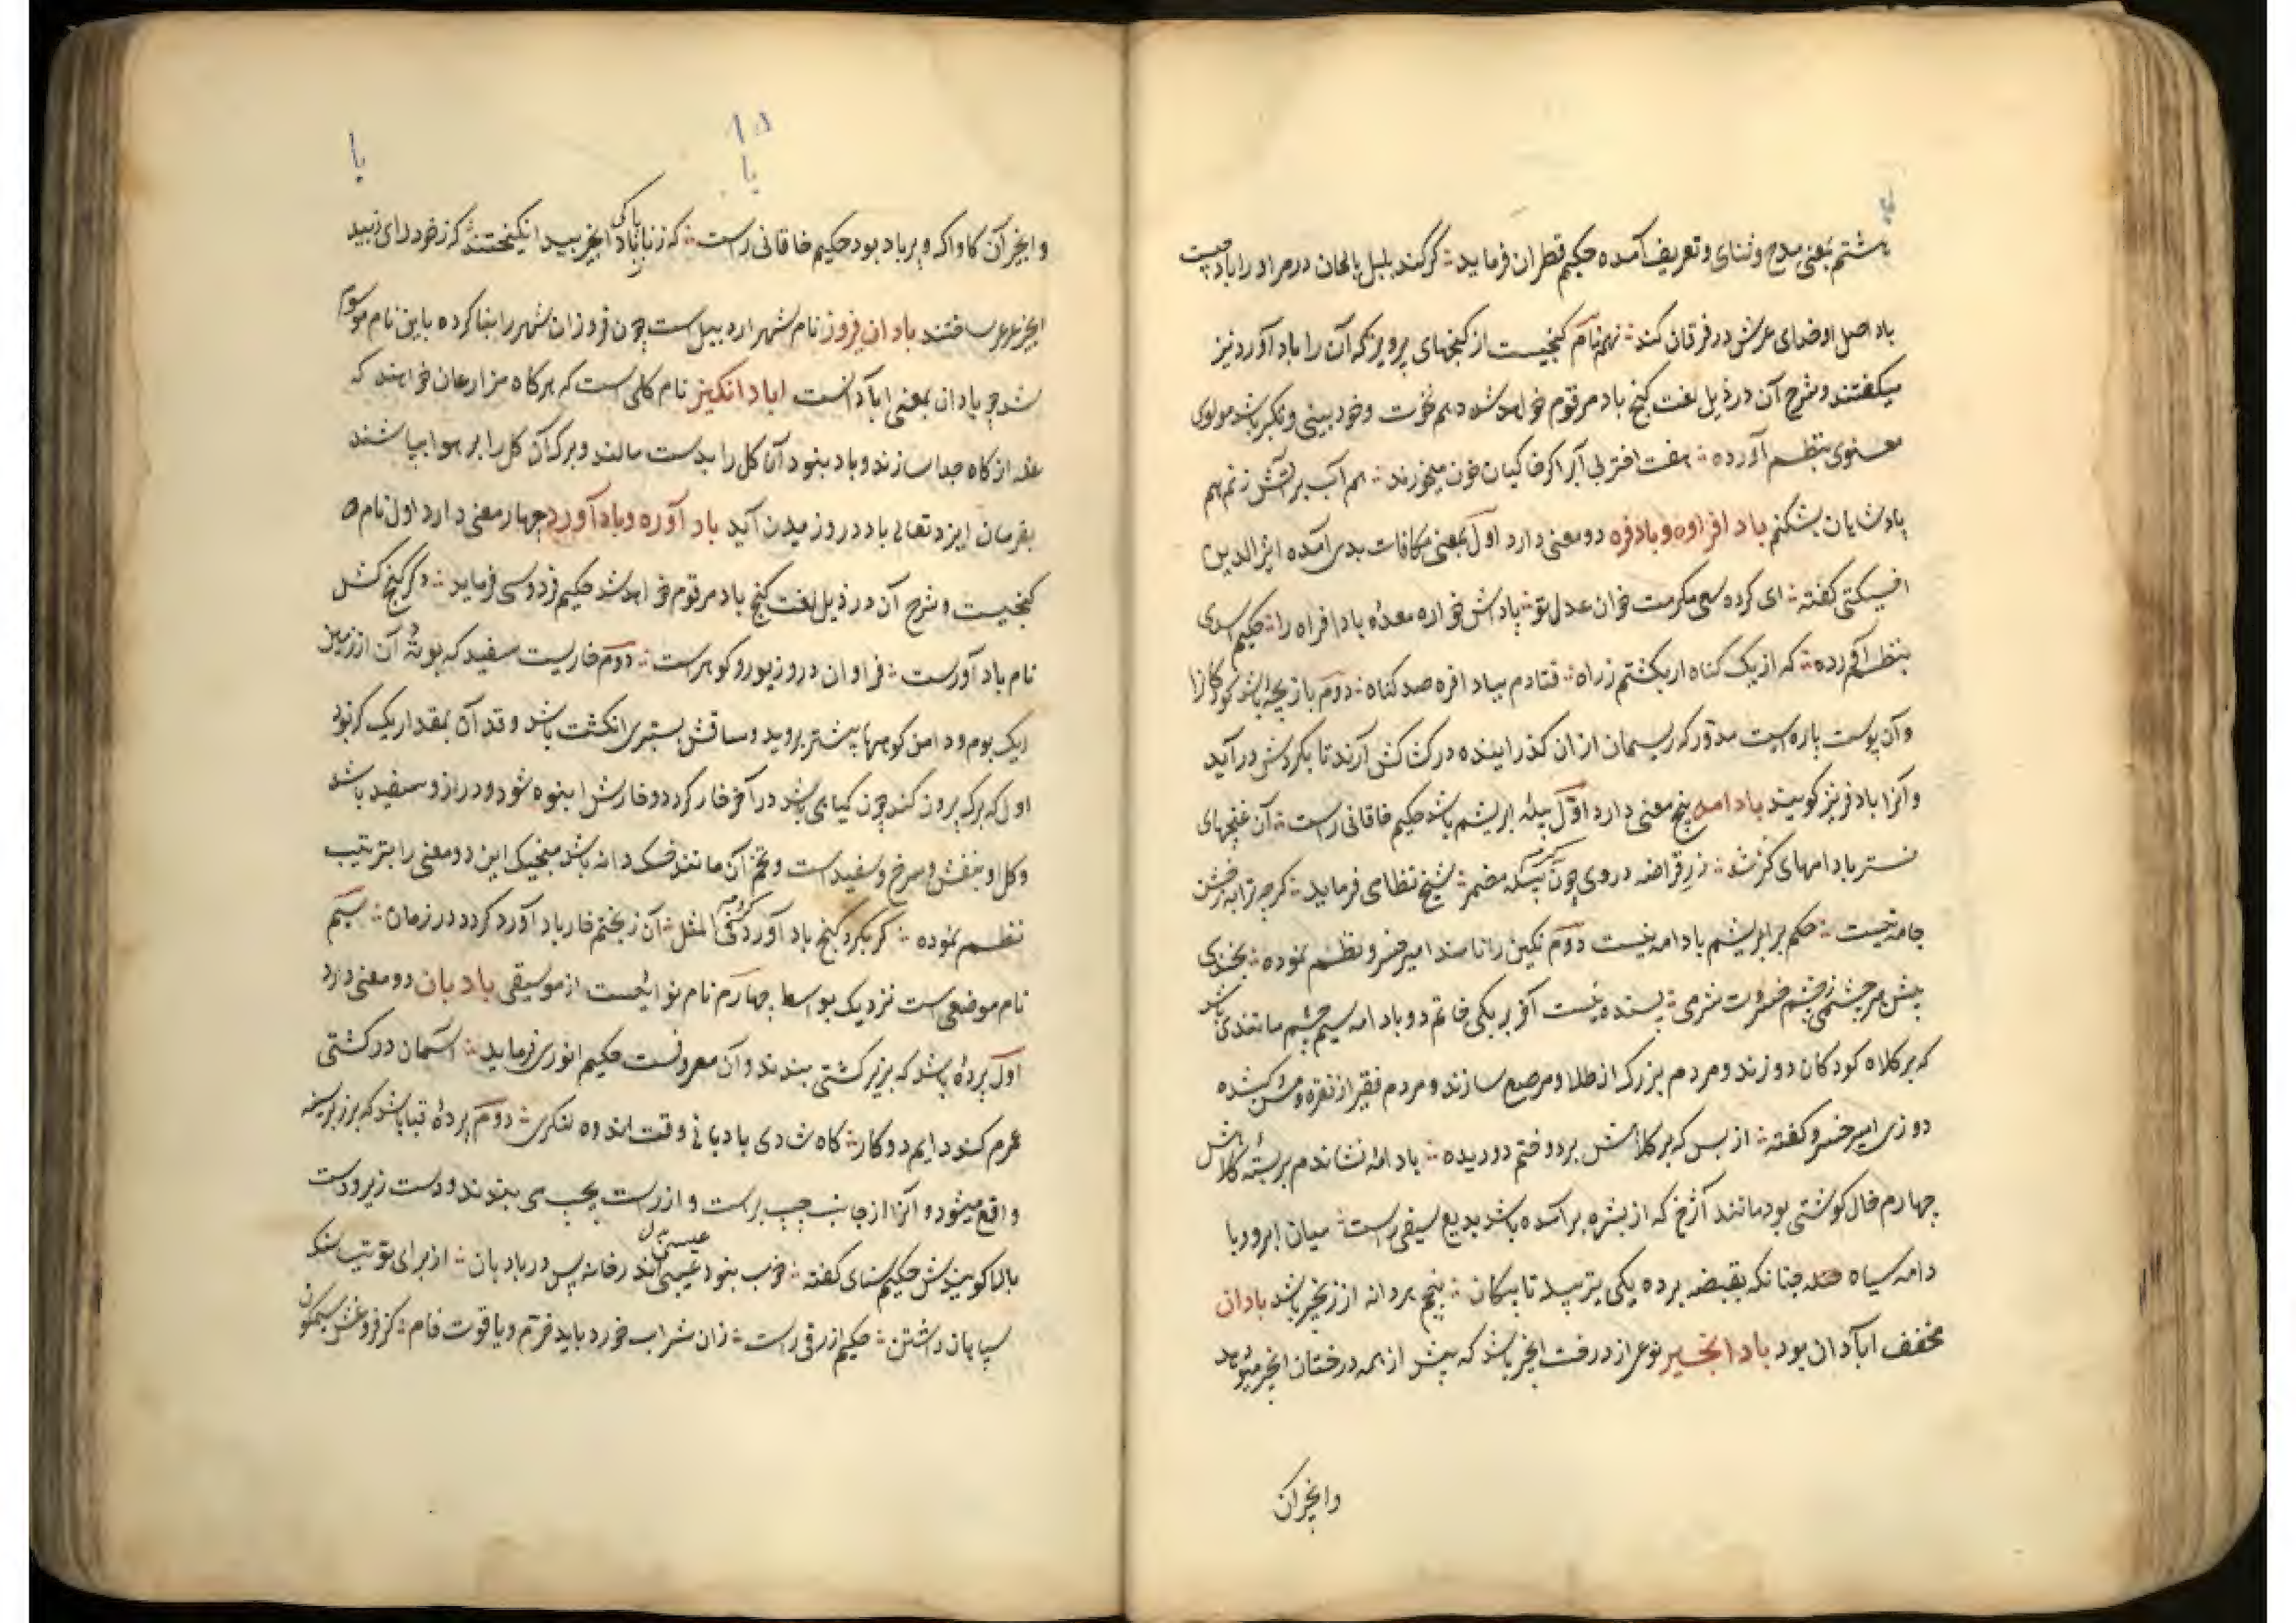 هشتم بمعنی مدح و ثنای و تعریف آمده حکیم قطران فرماید گر کند بلبل بالحان در مر او را باد چیست
باد اصل اوضای عرش در فرقان کند نهم نام گنجیست از گنجهای پرویز که آن را باد آورد نیز
میگفتند و شرح آن در ذیل لغت گنج باد مرقوم خواهد شد دهم نخوت و خود بینی و تکبر باشد مولوی
معنوی بنظم آورده هفت اختر بی آب را کز خاکیان خون میخورند هم آب بر آتش زنم هم
بادشایان بشکنم باد افراوه و بادفره دو معنی دارد اول بمعنی مکافات بدی آمده اثیر الدین
اخسیکتی گفته ای کرده سعی مکرمت خوان عدل تو پاداش خواره معدهٔ باد افراه را حکیم اسدی
بنظم آورده که از یک گناه ار بگشتم ز راه فتادم بباد افره صد گناه دوم بازیچه باشد کودکانرا
و آن پوست پاره ایست مدور که ریسمان ازان گذرانیده در کشاکش آرند تا بگردش در آید
و آنرا باد فر نیز گویند بادامه پنج معنی دارد اول پیلهٔ ابریشم باشد حکیم خاقانی راست آن غنچهای
نستر بادامهای گز شد زر قراضه در وی چون تخم پیله مضمر شیخ نظامی فرماید گرچه ترا به زخشن
جامه نیست حکم بر ابریشم بادامه نیست دوم نگین را نامند امیر خسرو نظم نموده بخندی
پیش هر چشمی ز چشم ضرورت شرمی پسنده نیست آخر بر یکی خاتم دو بادامه سیم چشم مانندی باشد
که بر کلاه کودکان دوزند و مردم بزرگ از طلا و مرصع سازند و مردم فقیر از نقره و مس و کشیده
دوزی امیر خسرو گفته از بس که بر کلاهش بر دوختم دو دیده بادامه نشاندم بر پستهٔ کلاهش
چهارم خال گوشتی بود مانند آژخ که از بشره برآمده باشد بدیع سیفی راست میان ابرو و با
دامه سیاه چنانکه بقبضه برده یکی بترسد تا پیکان پنجم بردانه از زنجیر باشد بادان
مخفف آبادان بود باد انجیر نوعی از درخت انجیر باشد که پیش از همه درختان انجیر میوه دهد
وانجیر آن
۸۵
با
با
و انجیر آن کاواک و پر باد بود حکیم خاقانی راست که زنا پاکی باد انجیر بید انگیختند کز خود رای نبید
انجیر عرعر ساختند بادان فیروز نام شهر اردبیل است چون فروزان شهر را بنا کرده باین نام موسوم
شد چه بادان بمعنی آبادانست اباد انگیز نام گلی است که هرگاه مزارعان خواهند که
غله از کاه جدا سازند و باد نبود آن گل را بدست مالند و برگ آن گل را بر هوا بپاشند
بفرمان ایزد تعالی باد در وزیدن آید باد آوره و باد آورد چهار معنی دارد اول نام
گنجیست و شرح آن در ذیل لغت گنج باد مرقوم خواهد شد حکیم فردوسی فرماید دگر گنج کش
نام باد آورست فراوان درو زیور و گوهرست دوم خاریست سفید که بوتهٔ آن از زمین
ریک بوم و دامن کوهها بیشتر بروید و ساقش بستبری انگشت باشد و قد آن بمقدار یک گز بود
اول که برگ برون کند چون گیاهی باشد در آخر خار گردد و خارش انبوه شود و دراز و سفید باشد
و گل او بنفش و سرخ و سفید است و تخم آن مانند خسک دانه باشد منجیک این دو معنی را بترتیب
نظم نموده گر بگرد گنج باد آورد گردد فی المثل آن ز بختم خار باد آورد گردد در زمان سیم
نام موضعی ست نزدیک بواسط چهارم نام نوائیست از موسیقی بادبان دو معنی دارد
اول پردهٔ باشد که بر تیر کشتی بندند و آن معروفست حکیم انوری فرماید آسمان در کشتی
عمرم کند دایم دو کار گاه شادی بادبانی وقت انده لنگری دوم پردهٔ قبا باشد که بر زبر سینه
واقع میشود و آنرا از جانب چپ براست و از راست بچپ می بندند و دست زیر و دست
بالا گویندش حکیم سنای گفته خوب نبود عیسی اندر خانه پس در بادبان از برای توتیا سنگ
سپاهان داشتن حکیم ازرقی راست زان شراب خورد باید خرم و یاقوت فام کز فروغش سیمگون